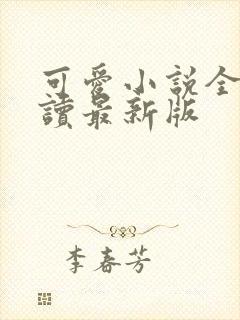 可愛小說全
讀最新版
李春芳